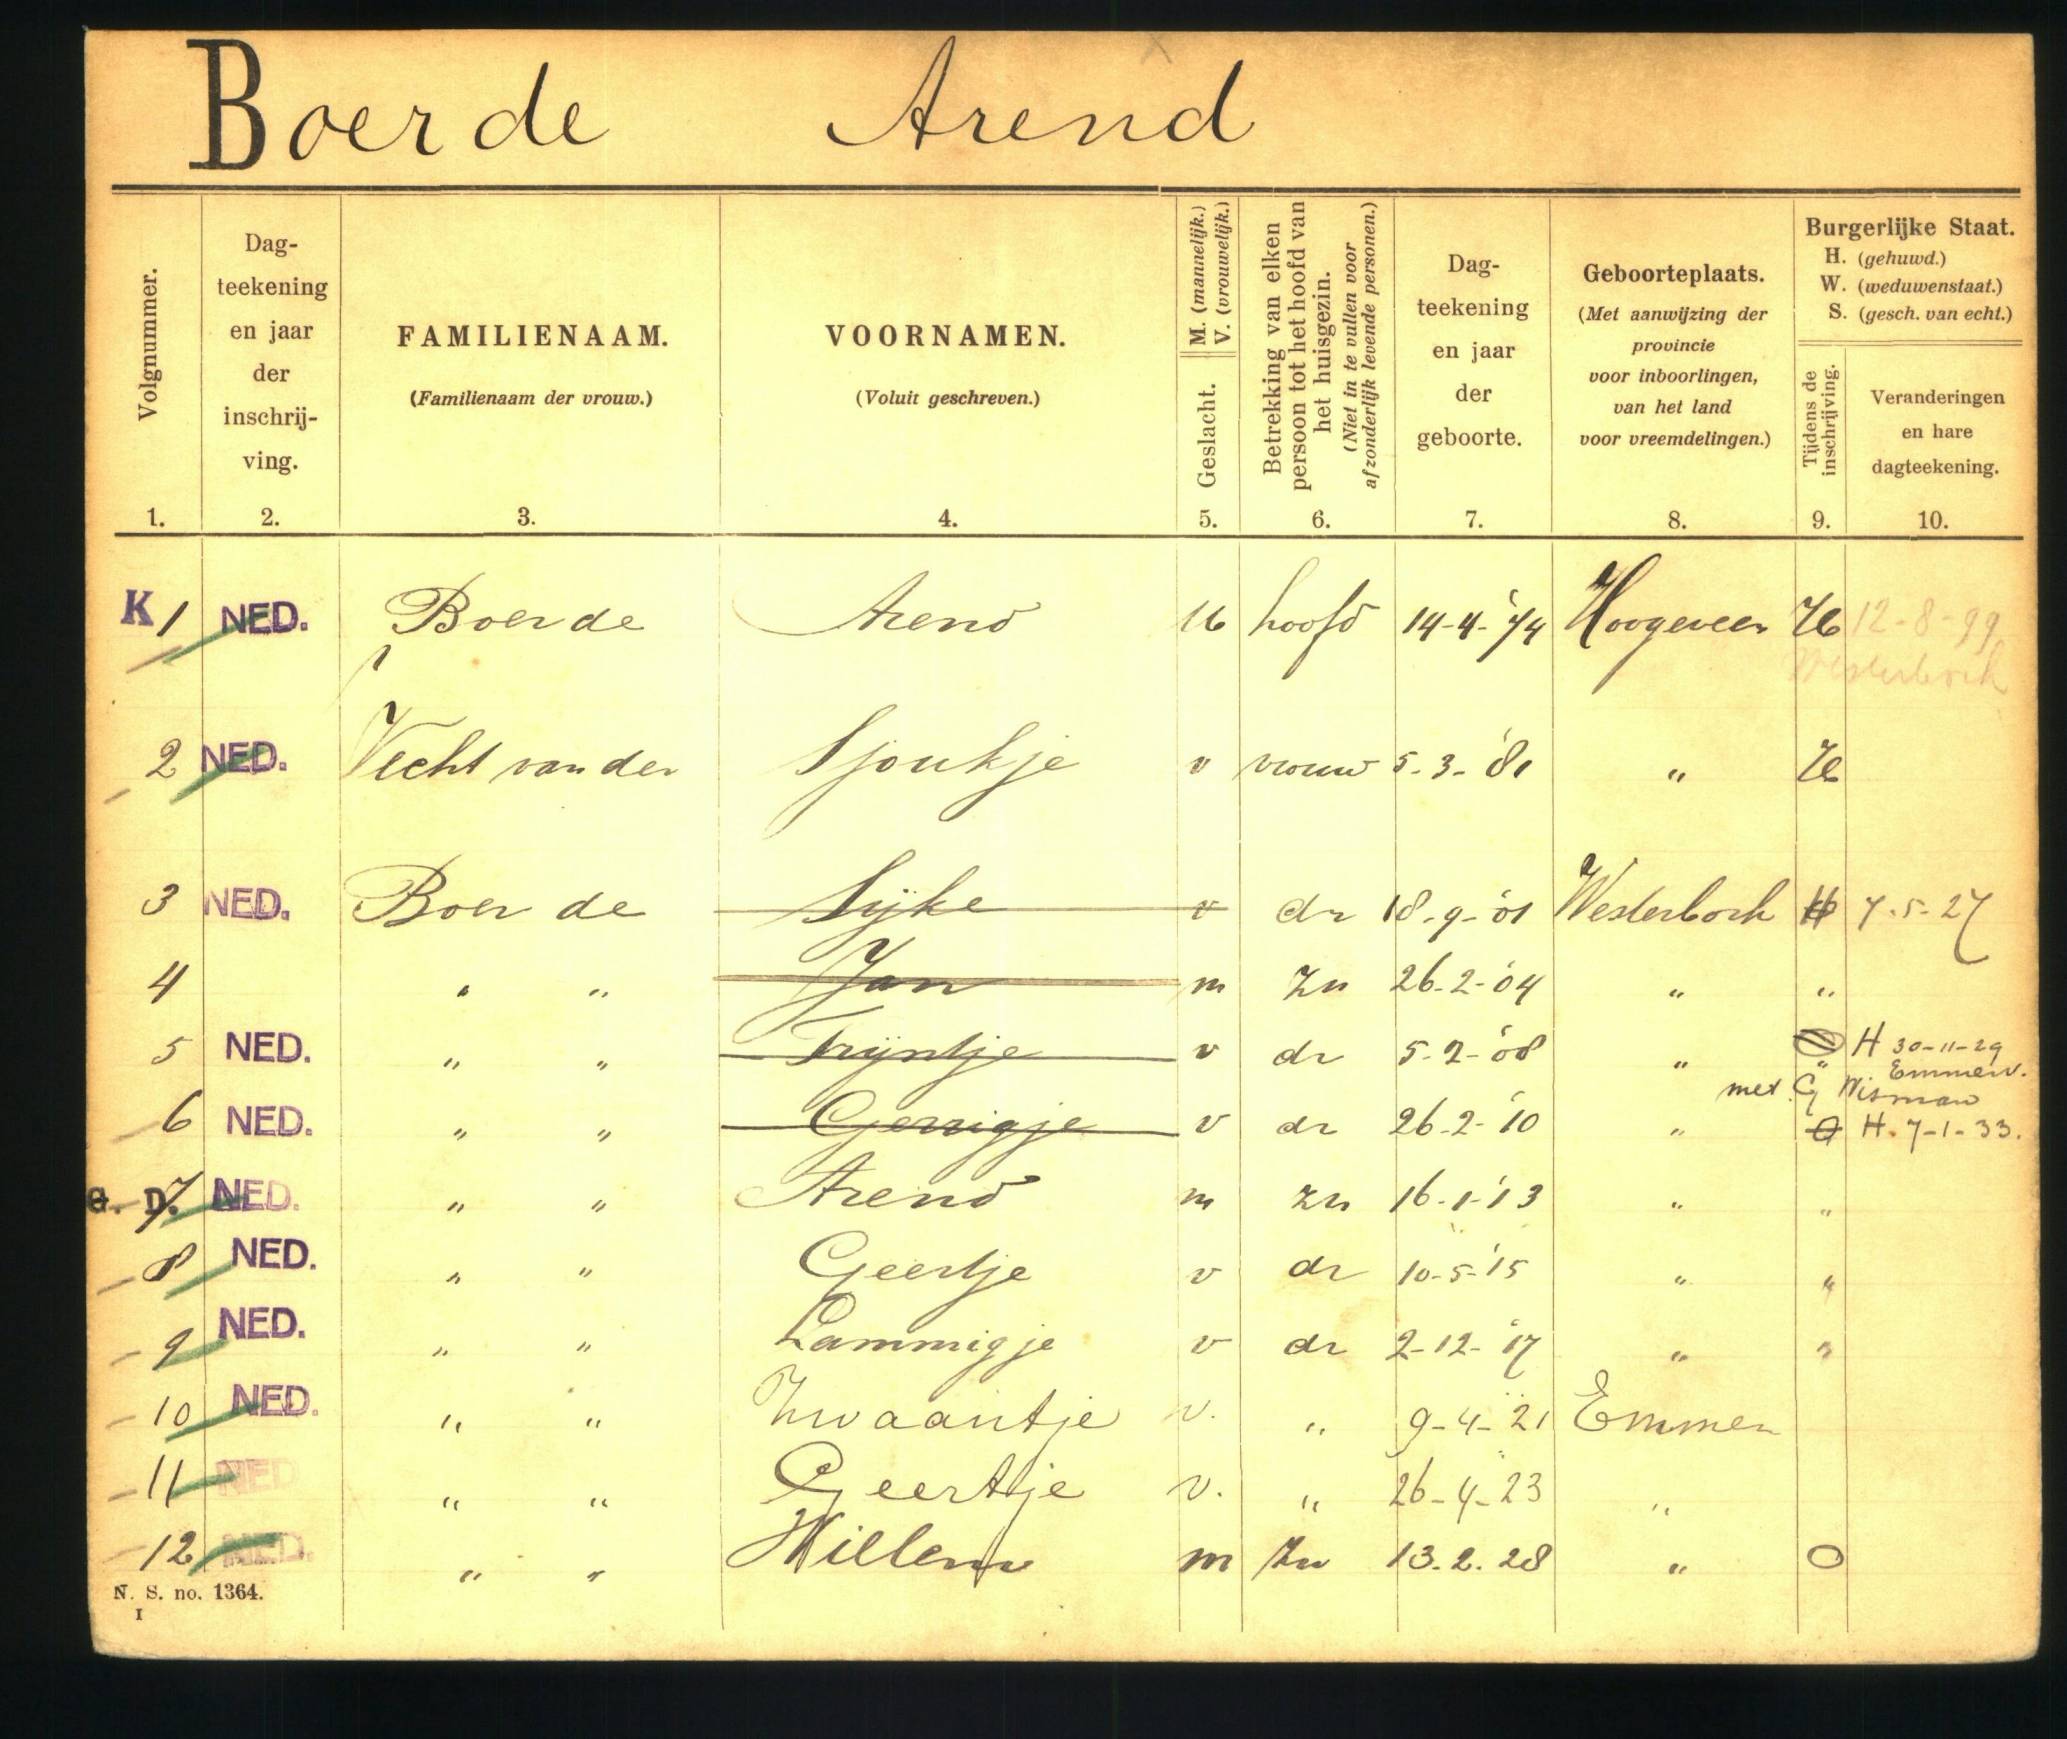 Boer de Arend
Volgnummer.
Dag-
teekening
en jaar
der
inschrij-
ving.
FAMILIENAAM.
(Familienaam der vrouw.)
VOORNAMEN.
(Voluit geschreven.)
Geslacht.
M. (mannelijk.)
V. (vrouwelijk.)
Betrekking van elken
persoon tot het hoofd van
het huisgezin.
(Niet in te vullen voor
afzonderlijk levende personen.)
Dag-
teekening
en jaar
der
geboorte.
Geboorteplaats.
(Met aanwijzing der
provincie
voor inboorlingen,
van het land
voor vreemdelingen.)
Burgerlijke Staat.
H. (gehuwd.)
W. (weduwenstaat.)
S. (gesch. van echt.)
Tijdens de
inschrijving.
Veranderingen
en hare
dagteekening.
1. 2. 3. 4. 5. 6. 7. 8. 9. 10.
K 1 NED. Boer de Arend M hoofd 14-4-'74 Hoogeveen H 12-8-99
Westerbork
2 NED. Vecht van der Sjoukje v vrouw 5-3-'81 " H
3 NED. Boer de Sijke v dr 18-9-'01 Westerbork H 7-5-27
4 " " Jan m Zn 26-2-'04 " "
5 NED. " " Trijntje v dr 5-2-'08 " " H 30-11-29
Emmen.
met G Wisman
6 NED. " " Gerrigje v dr 26-2-'10 " O H. 7-1-33.
G. D. 7 NED. " " Arend m zn 16-1-'13 " "
8 NED. " " Geertje v dr 10-5-'15 " "
9 NED. " " Lammigje v dr 2-12-'17 " "
10 NED. " " Zwaantje v. " 9-4-'21 Emmen
11 NED " " Geertje v. " 26-4-'23 "
12 NED. " " Willem m Zn 13.2.28 " O
N. S. no. 1364.
I